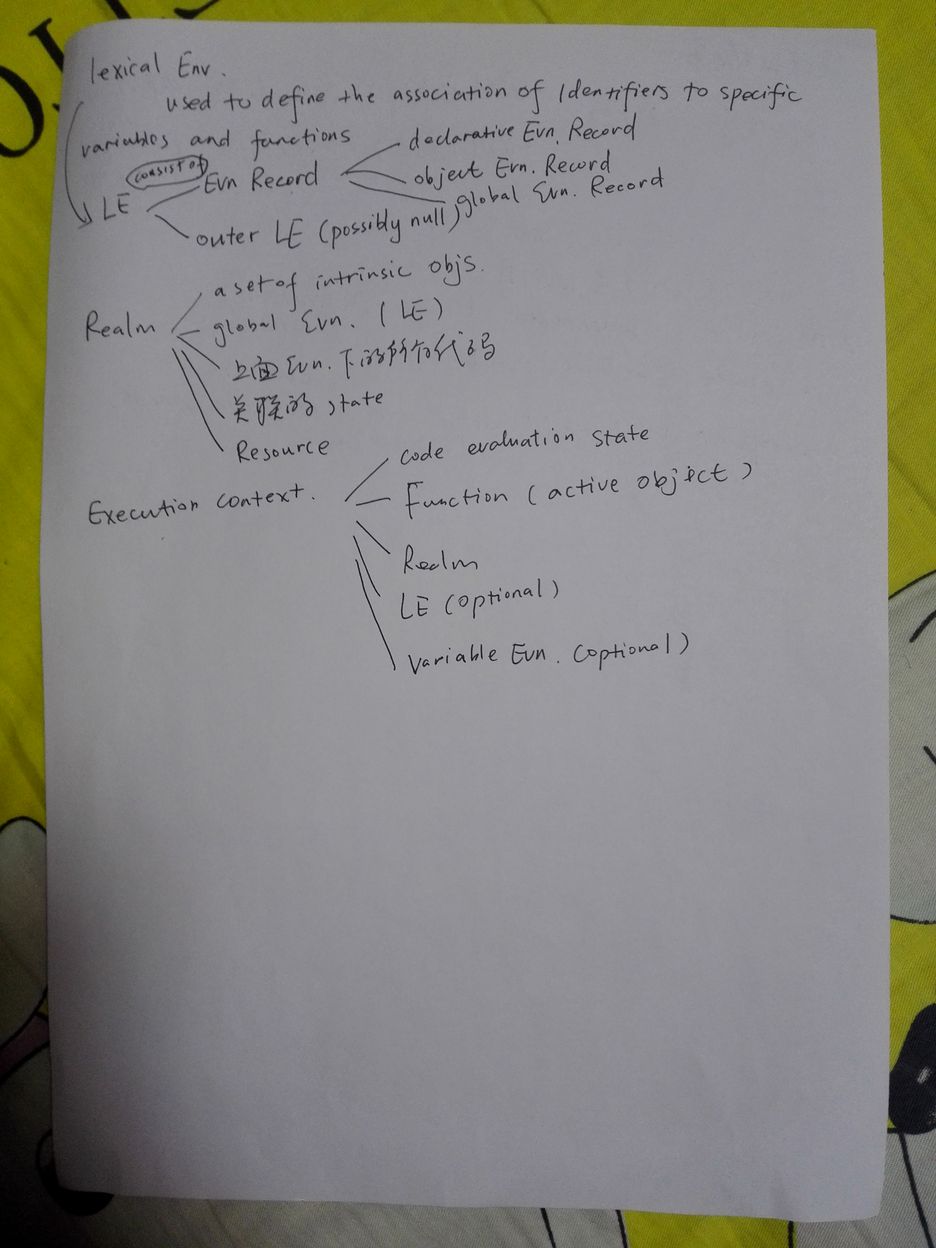 lexical Env.
used to define the association of Identifiers to specific
variables and functions
declarative Evn. Record
consist of
Evn Record
object Evn. Record
LE
global Evn. Record
outer LE (possibly null)
a set of intrinsic objs.
Realm
global Evn. (LE)
上面 Evn. 下的所有代码
关联的 state
Resource
code evaluation state
Execution context.
Function (active object)
Realm
LE (optional)
Variable Evn. (optional)